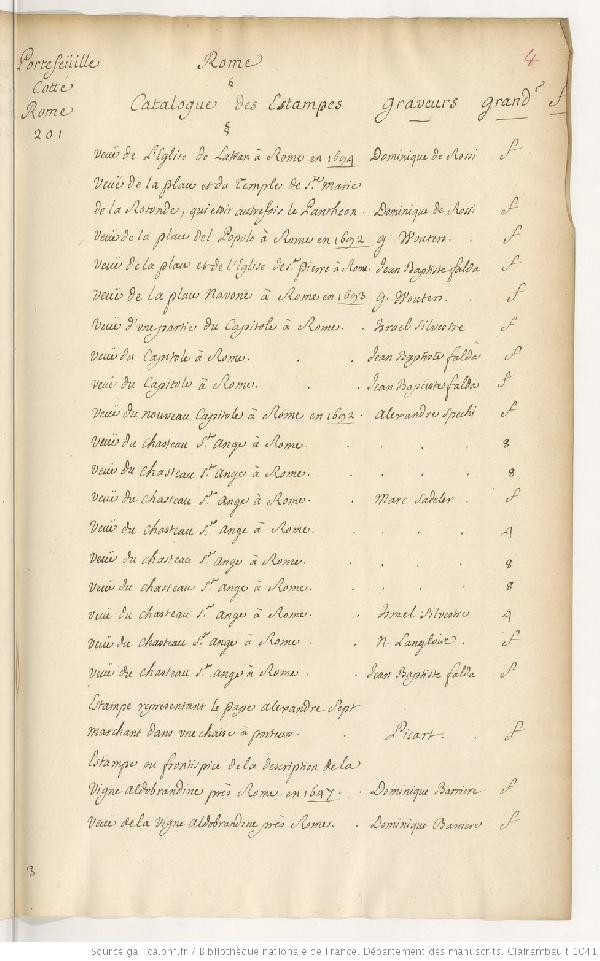 Portefeüille Rome 4
Cotté §
Rome Catalogue des Estampes graveurs grandr f
201 §
Veüe de L'Eglise de Latran à Rome en 1694 Dominique de Rossi f
Veüe de la place et du Temples de Ste Marie
de la Rotonde, qui etoit autrefois le Pantheon. Dominique de Rossi f
Veüe de la place del Popolo à Rome en 1692 g. Wouters. f
Veüe de la place et de l'Eglise de St pierre à Rome Jean Baptiste falda f
Veüe de la place Navone à Rome en 1693 g. Wouters. f
Veüe d'une partie du Capitole à Rome. . Israel Silvestre f
Veüe du Capitole à Rome. . . Jean Baptiste falda f
Veüe du Capitole à Rome. . . Jean Baptiste falda f
Veüe du nouveau Capitole à Rome en 1692. Alexandre Spechi f
Veüe du chasteau St Ange à Rome. . . . . 8
Veüe du chasteau St Ange à Rome. . . . . 8
Veüe du chasteau St Ange à Rome. . Marc Sadeler . f
Veüe du chasteau St Ange à Rome. . . . . 4
Veüe du chasteau St Ange à Rome. . . . . 8
Veüe du chasteau St Ange à Rome. . . . . 8
Veüe du chasteau St Ange à Rome. . Israel Silvestre 4
Veüe du chasteau St Ange à Rome . . N. Langlois. . f
Veüe du chasteau St Ange à Rome . . Jean Baptiste falda f
Estampe representant le pape Alexandre Sept
marchant dans une chaise à porteur. . Picart. . f
Estampe ou frontispice de la description de la
Vigne Aldobrandine près Rome en 1647. . Dominique Barriere f
Veüe de la Vigne Aldobrandine près Rome. . Dominique Barriere f
3
Source gallica.bnf.fr / Bibliothèque nationale de France. Département des manuscrits. Clairambault 1041